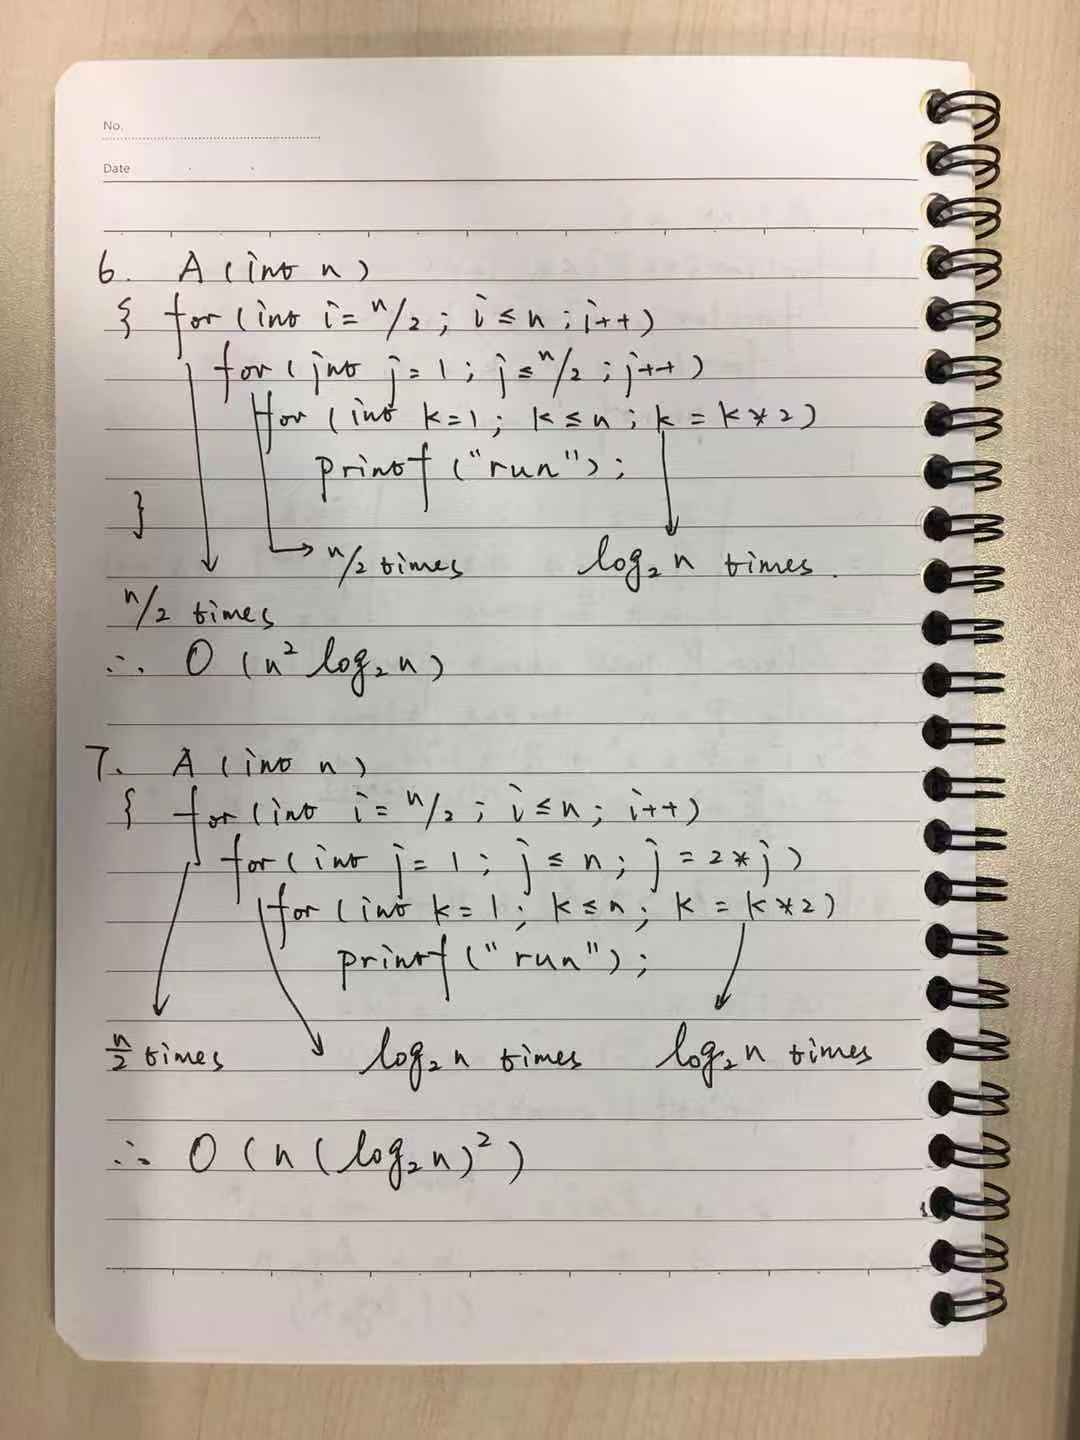 No.
Date
6. A (int n)
{ for (int i = n/2 ; i ≤ n ; i++)
for (int j = 1 ; j ≤ n/2 ; j++)
for (int k=1 ; k ≤ n ; k = k*2)
printf ("run");
}
n/2 times log₂n times.
n/2 times
∴ O (n² log₂n)
7. A (int n)
{ for (int i = n/2 ; i ≤ n ; i++)
for (int j = 1 ; j ≤ n ; j = 2*j)
for (int k = 1 ; k ≤ n ; k = k*2)
printf ("run");
n/2 times log₂n times log₂n times
∴ O (n (log₂n)²)